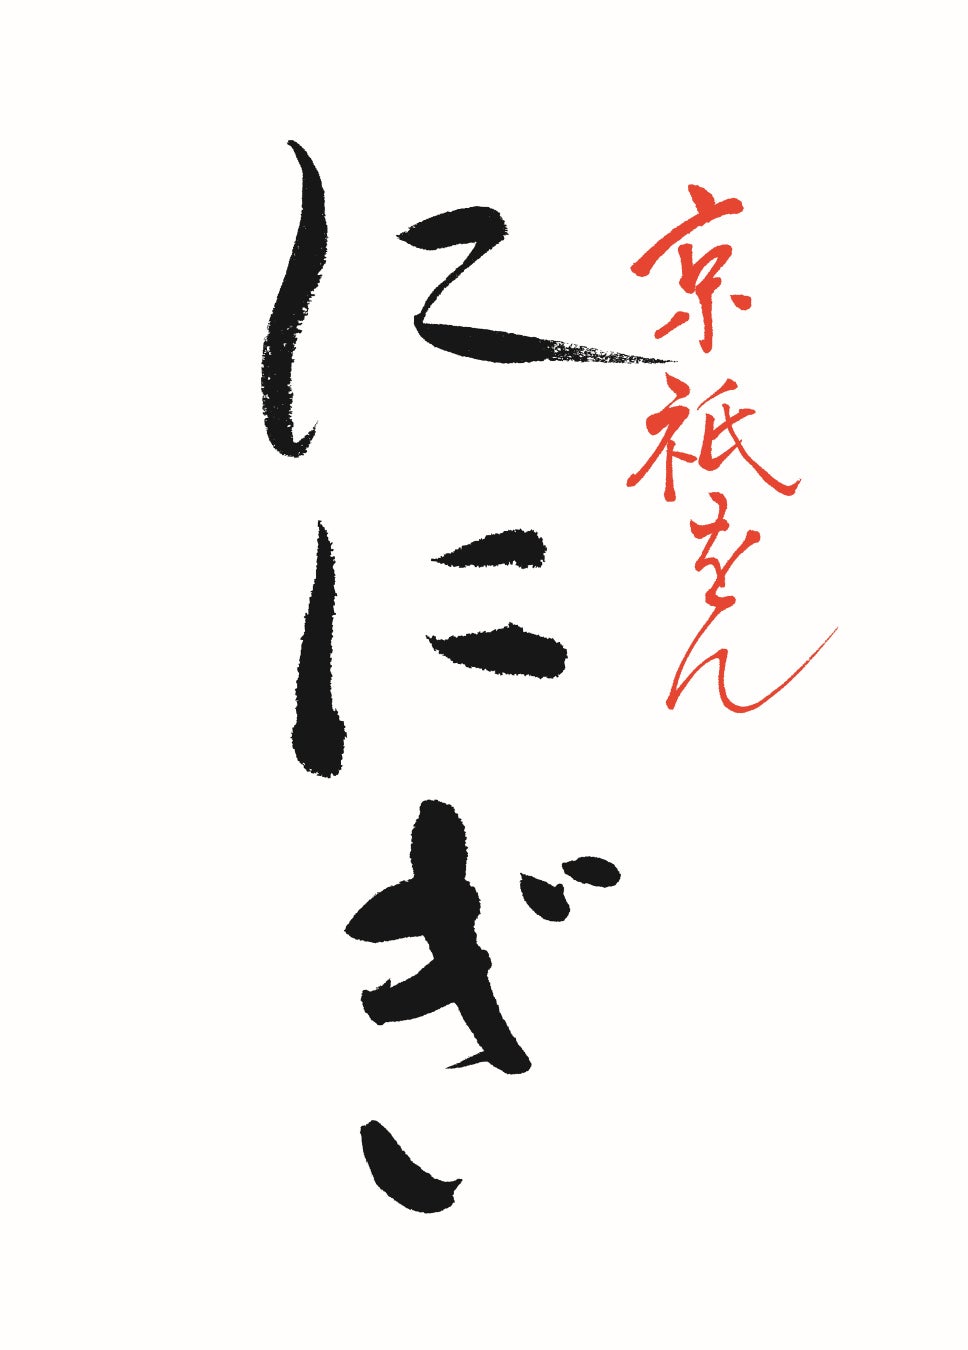 京祇をん
ににぎ